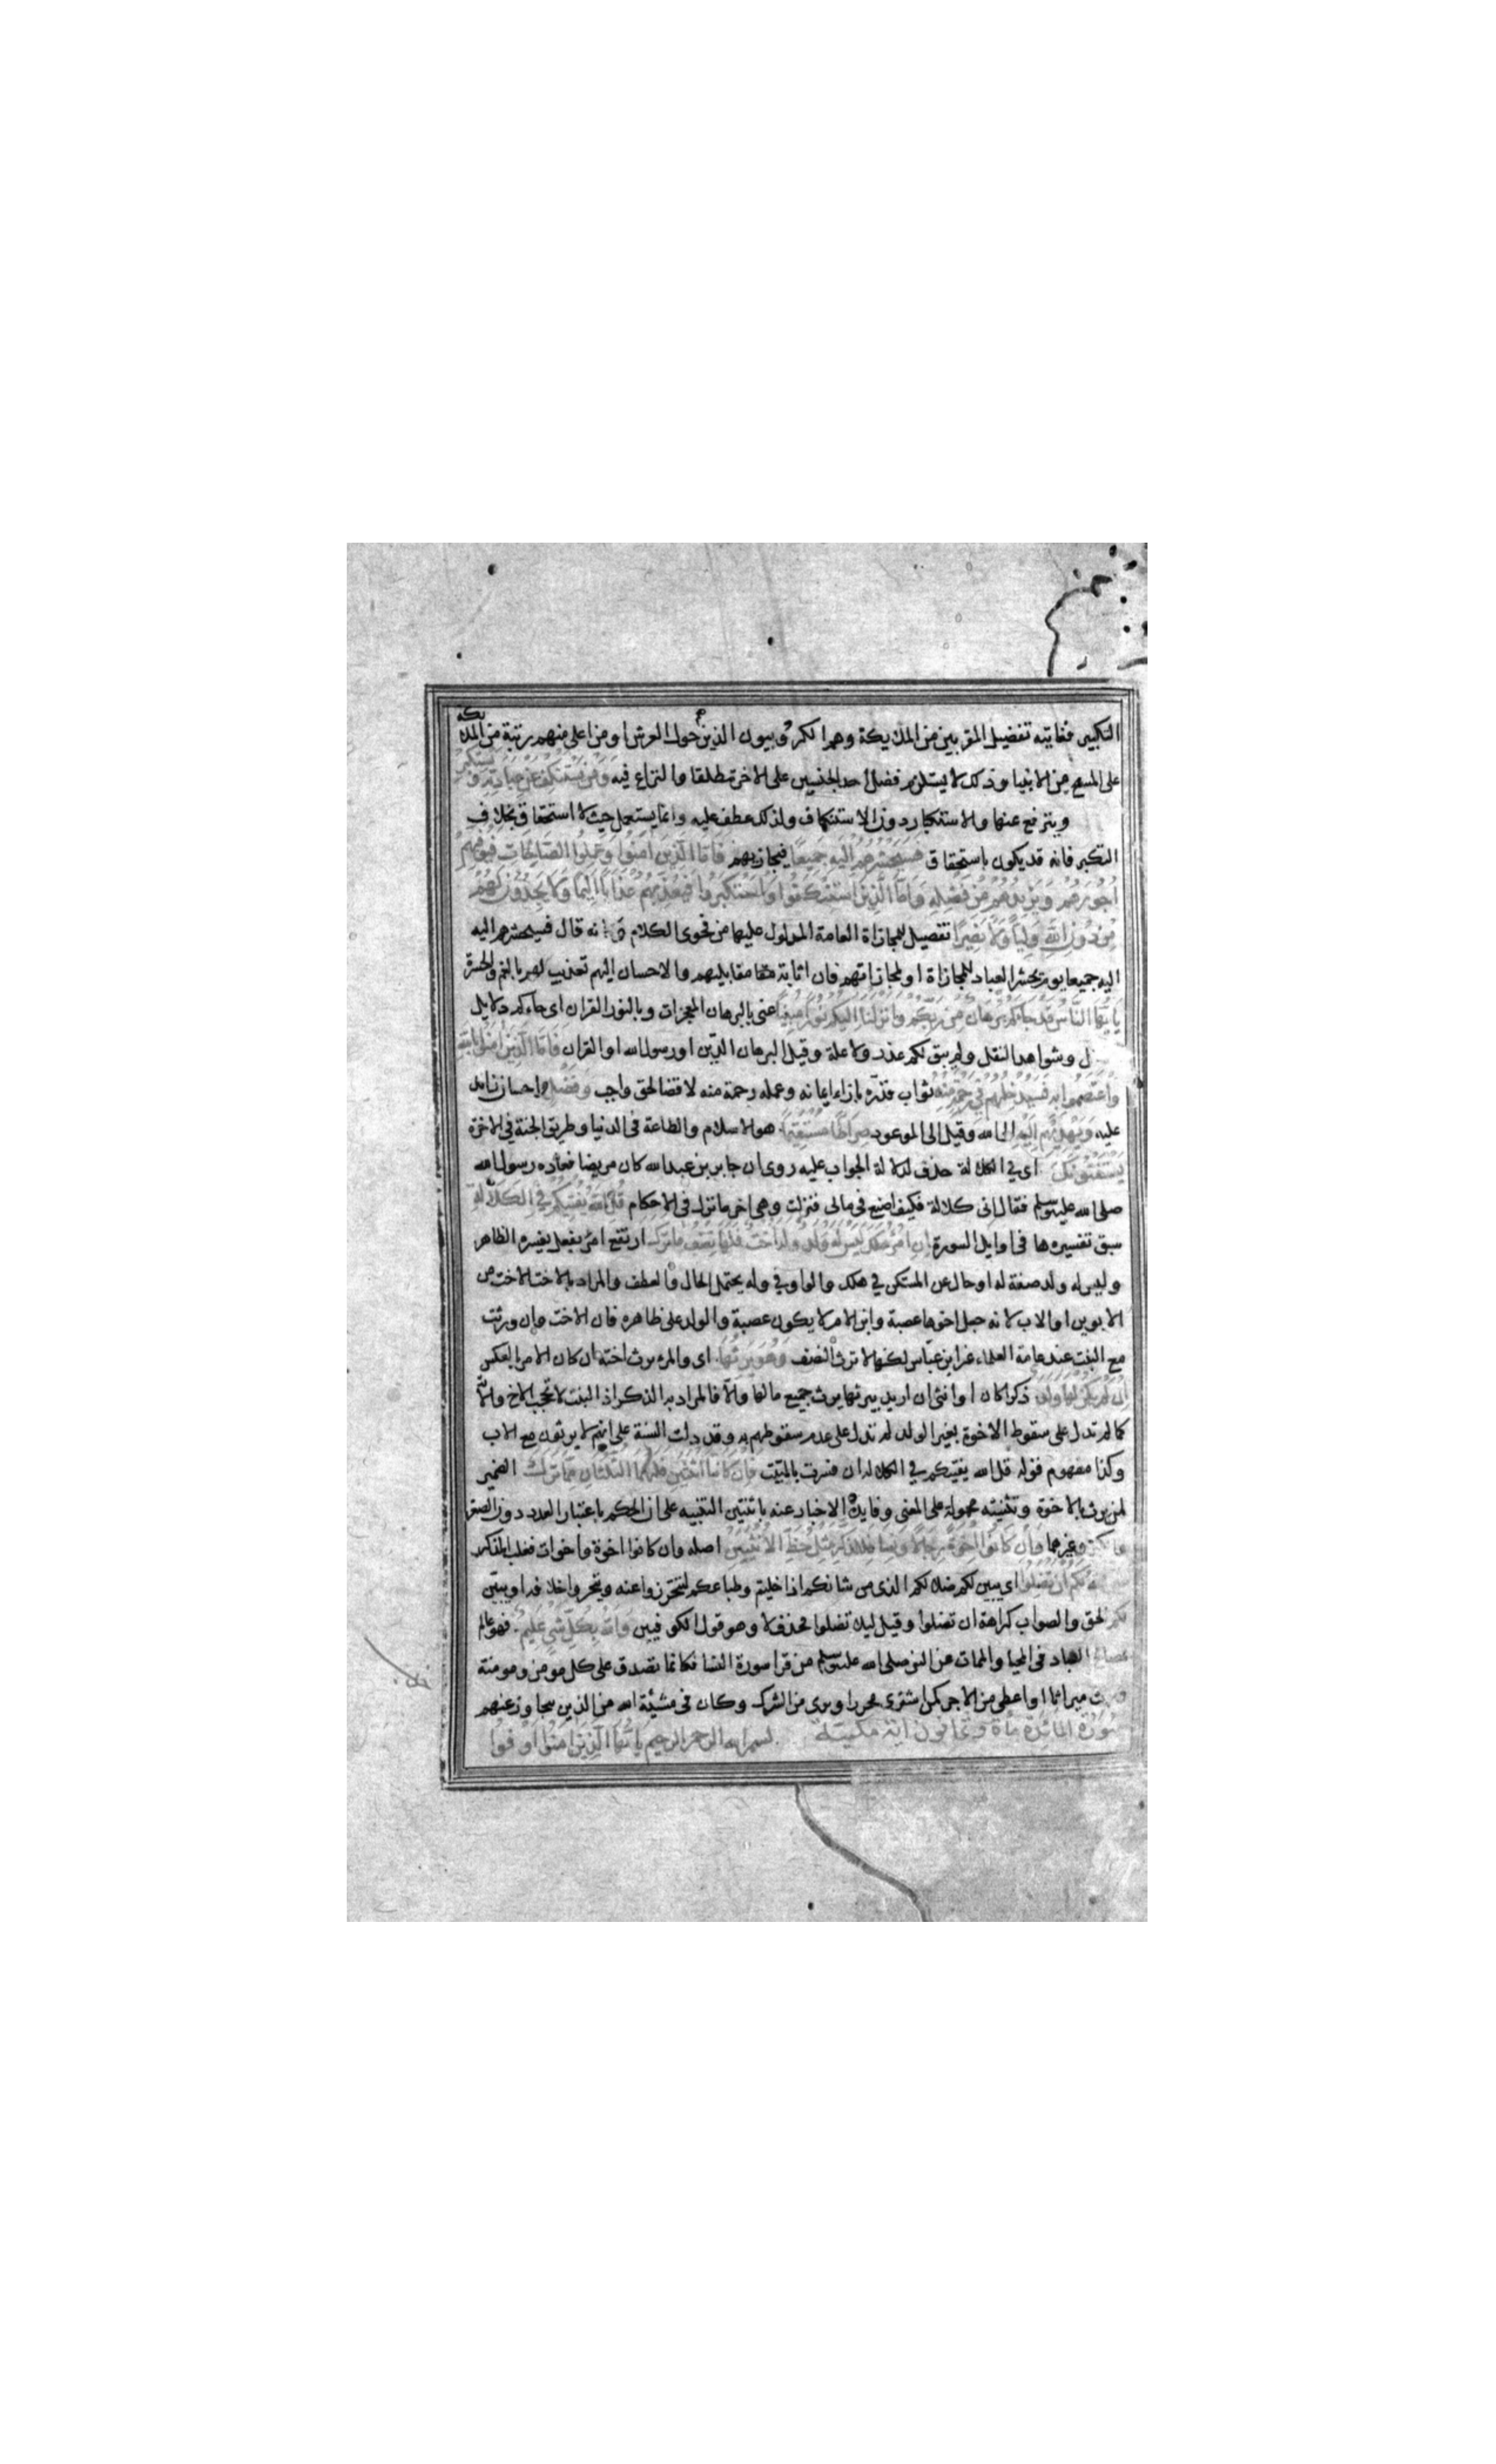 التكبير فغايته تفضيل المقربين من الملايكة وهم الكروبيون الذين حول العرش او من اعلى منهم رتبة من الملايكة
على المسيح من الانبيا وذلك لا يستلزم فضل احد الجنسين على الاخر مطلقا والنزاع فيه وَمَنْ يَسْتَنْكِفْ عَنْ عِبَادَتِهِ وَيَسْتَكْبِرْ
ويترفع عنها والاستكبار دون الاستنكاف ولذلك عطف عليه وانما يستعمل حيث لا استحقاق بخلاف
التكبر فانه قد يكون باستحقاق فسيحشرهم اليه جميعا فيجازيهم فَاَمَّا الَّذِينَ اٰمَنُوا وَعَمِلُوا الصَّالِحَاتِ فَيُوَفِّيهِمْ
اُجُورَهُمْ وَيَزِيدُهُمْ مِنْ فَضْلِهِ وَاَمَّا الَّذِينَ اسْتَنْكَفُوا وَاسْتَكْبَرُوا فَيُعَذِّبُهُمْ عَذَابًا اَلِيمًا وَلَا يَجِدُونَ لَهُمْ
مِنْ دُونِ اللهِ وَلِيًّا وَلَا نَصِيرًا تفصيل للمجازاة العامة المدلول عليها من فحوى الكلام انه قال فسيحشرهم اليه
اليه جميعا يوم يحشر العباد للمجازاة او لمجازاتهم فان اثابة مقابليهم والاحسان اليهم تعذيب لهم بالغم والحسرة
يَاَيُّهَا النَّاسُ قَدْ جَاءَكُمْ بُرْهَانٌ مِنْ رَبِّكُمْ وَاَنْزَلْنَا اِلَيْكُمْ نُورًا مُبِينًا عنى بالبرهان المعجزات وبالنور القران اى جاءكم دلايل
وشواهد النقل ولم يبق لكم عذر ولا علة وقيل البرهان الدين او رسول الله او القران فَاَمَّا الَّذِينَ اٰمَنُوا بِاللهِ
وَاعْتَصَمُوا بِهِ فَسَيُدْخِلُهُمْ فِي رَحْمَةٍ مِنْهُ ثواب قدره بازاء ايمانه وعمله رحمة منه لا قضا لحق واجب وَفَضْلٍ احسان زايد
عليه وَيَهْدِيهِمْ اِلَيْهِ الى الله وقيل الى الموعود صِرَاطًا مُسْتَقِيمًا هو الاسلام والطاعة فى الدنيا وطريق الجنة فى الاخرة
يَسْتَفْتُونَكَ اى في الكلالة حذف لدلالة الجواب عليه روى ان جابر بن عبد الله كان مريضا فعاده رسول الله
صلى الله عليه وسلم فقال انى كلالة فكيف اصنع فى مالى فنزلت وهى اخر ما نزل فى الاحكام قُلِ اللهُ يُفْتِيكُمْ فِي الْكَلَالَةِ
سبق تفسيرها فى اوايل السورة اِنِ امْرُؤٌ هَلَكَ لَيْسَ لَهُ وَلَدٌ وَلَهُ اُخْتٌ فَلَهَا نِصْفُ مَا تَرَكَ ارتفع امرؤ بفعل يفسره الظاهر
وليس له ولد صفة له او حال عن المستكن في هلك والواو في وله يحتمل الحال والعطف والمراد بالاخت الاخت من
الابوين او الاب لانه جعل اخوها عصبة وابن الام لا يكون عصبة والولد على ظاهره فان الاخت وان ورثت
مع البنت عند عامة العلماء غير ابن عباس لكنها لا ترث النصف وَهُوَ يَرِثُهَا اى والمرء يرث اخته ان كان الامر بالعكس
اِنْ لَمْ يَكُنْ لَهَا وَلَدٌ ذكرا كان او انثى ان اريد بيرثها يرث جميع مالها والا فالمراد به الذكر اذ البنت لا تحجب الاخ والاية
كما لم تدل على سقوط الاخوة بغير الولد لم تدل على عدم سقوطهم به وقد دلت السنة على انهم لا يرثون مع الاب
وكذا مفهوم قوله قل الله يفتيكم في الكلالة ان فسرت بالميت فَاِنْ كَانَتَا اثْنَتَيْنِ فَلَهُمَا الثُّلُثَانِ مِمَّا تَرَكَ الضمير
لمن يرث بالاخوة وتثنيته محمولة على المعنى وفايدة الاخبار عنه باثنتين التنبيه على ان الحكم باعتبار العدد دون الصغر
وغيرهما وَاِنْ كَانُوا اِخْوَةً رِجَالًا وَنِسَاءً فَلِلذَّكَرِ مِثْلُ حَظِّ الْاُنْثَيَيْنِ اصله وان كانوا اخوة واخوات فغلب المذكر
لَكُمْ اَنْ تَضِلُّوا اى يبين لكم ضلالكم الذى من شانكم اذا خليتم وطباعكم لتحترزوا عنه وتتحروا خلافه او يبين
لكم الحق والصواب كراهة ان تضلوا وقيل ليلا تضلوا فحذف لا وهو قول الكوفيين وَاللهُ بِكُلِّ شَيْءٍ عَلِيمٌ فهو عالم
العباد فى المحيا والممات عن النبى صلى الله عليه وسلم من قرا سورة النسا فكانما تصدق على كل مومن ومومنة
ميراثا او اعطى من الاجر كمن اشترى محررا وبرى من الشرك وكان فى مشيئة الله من الذين يتجاوز عنهم
سُورَة المائدة مأة وثمانون اية مكية بسم الله الرحمن الرحيم يَاَيُّهَا الَّذِينَ اٰمَنُوا اَوْفُوا